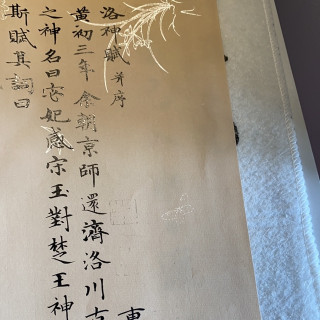 洛神賦 并序
黄初三年余朝京師還濟洛川古
之神名曰宓妃感宋玉對楚王神
斯賦其詞曰